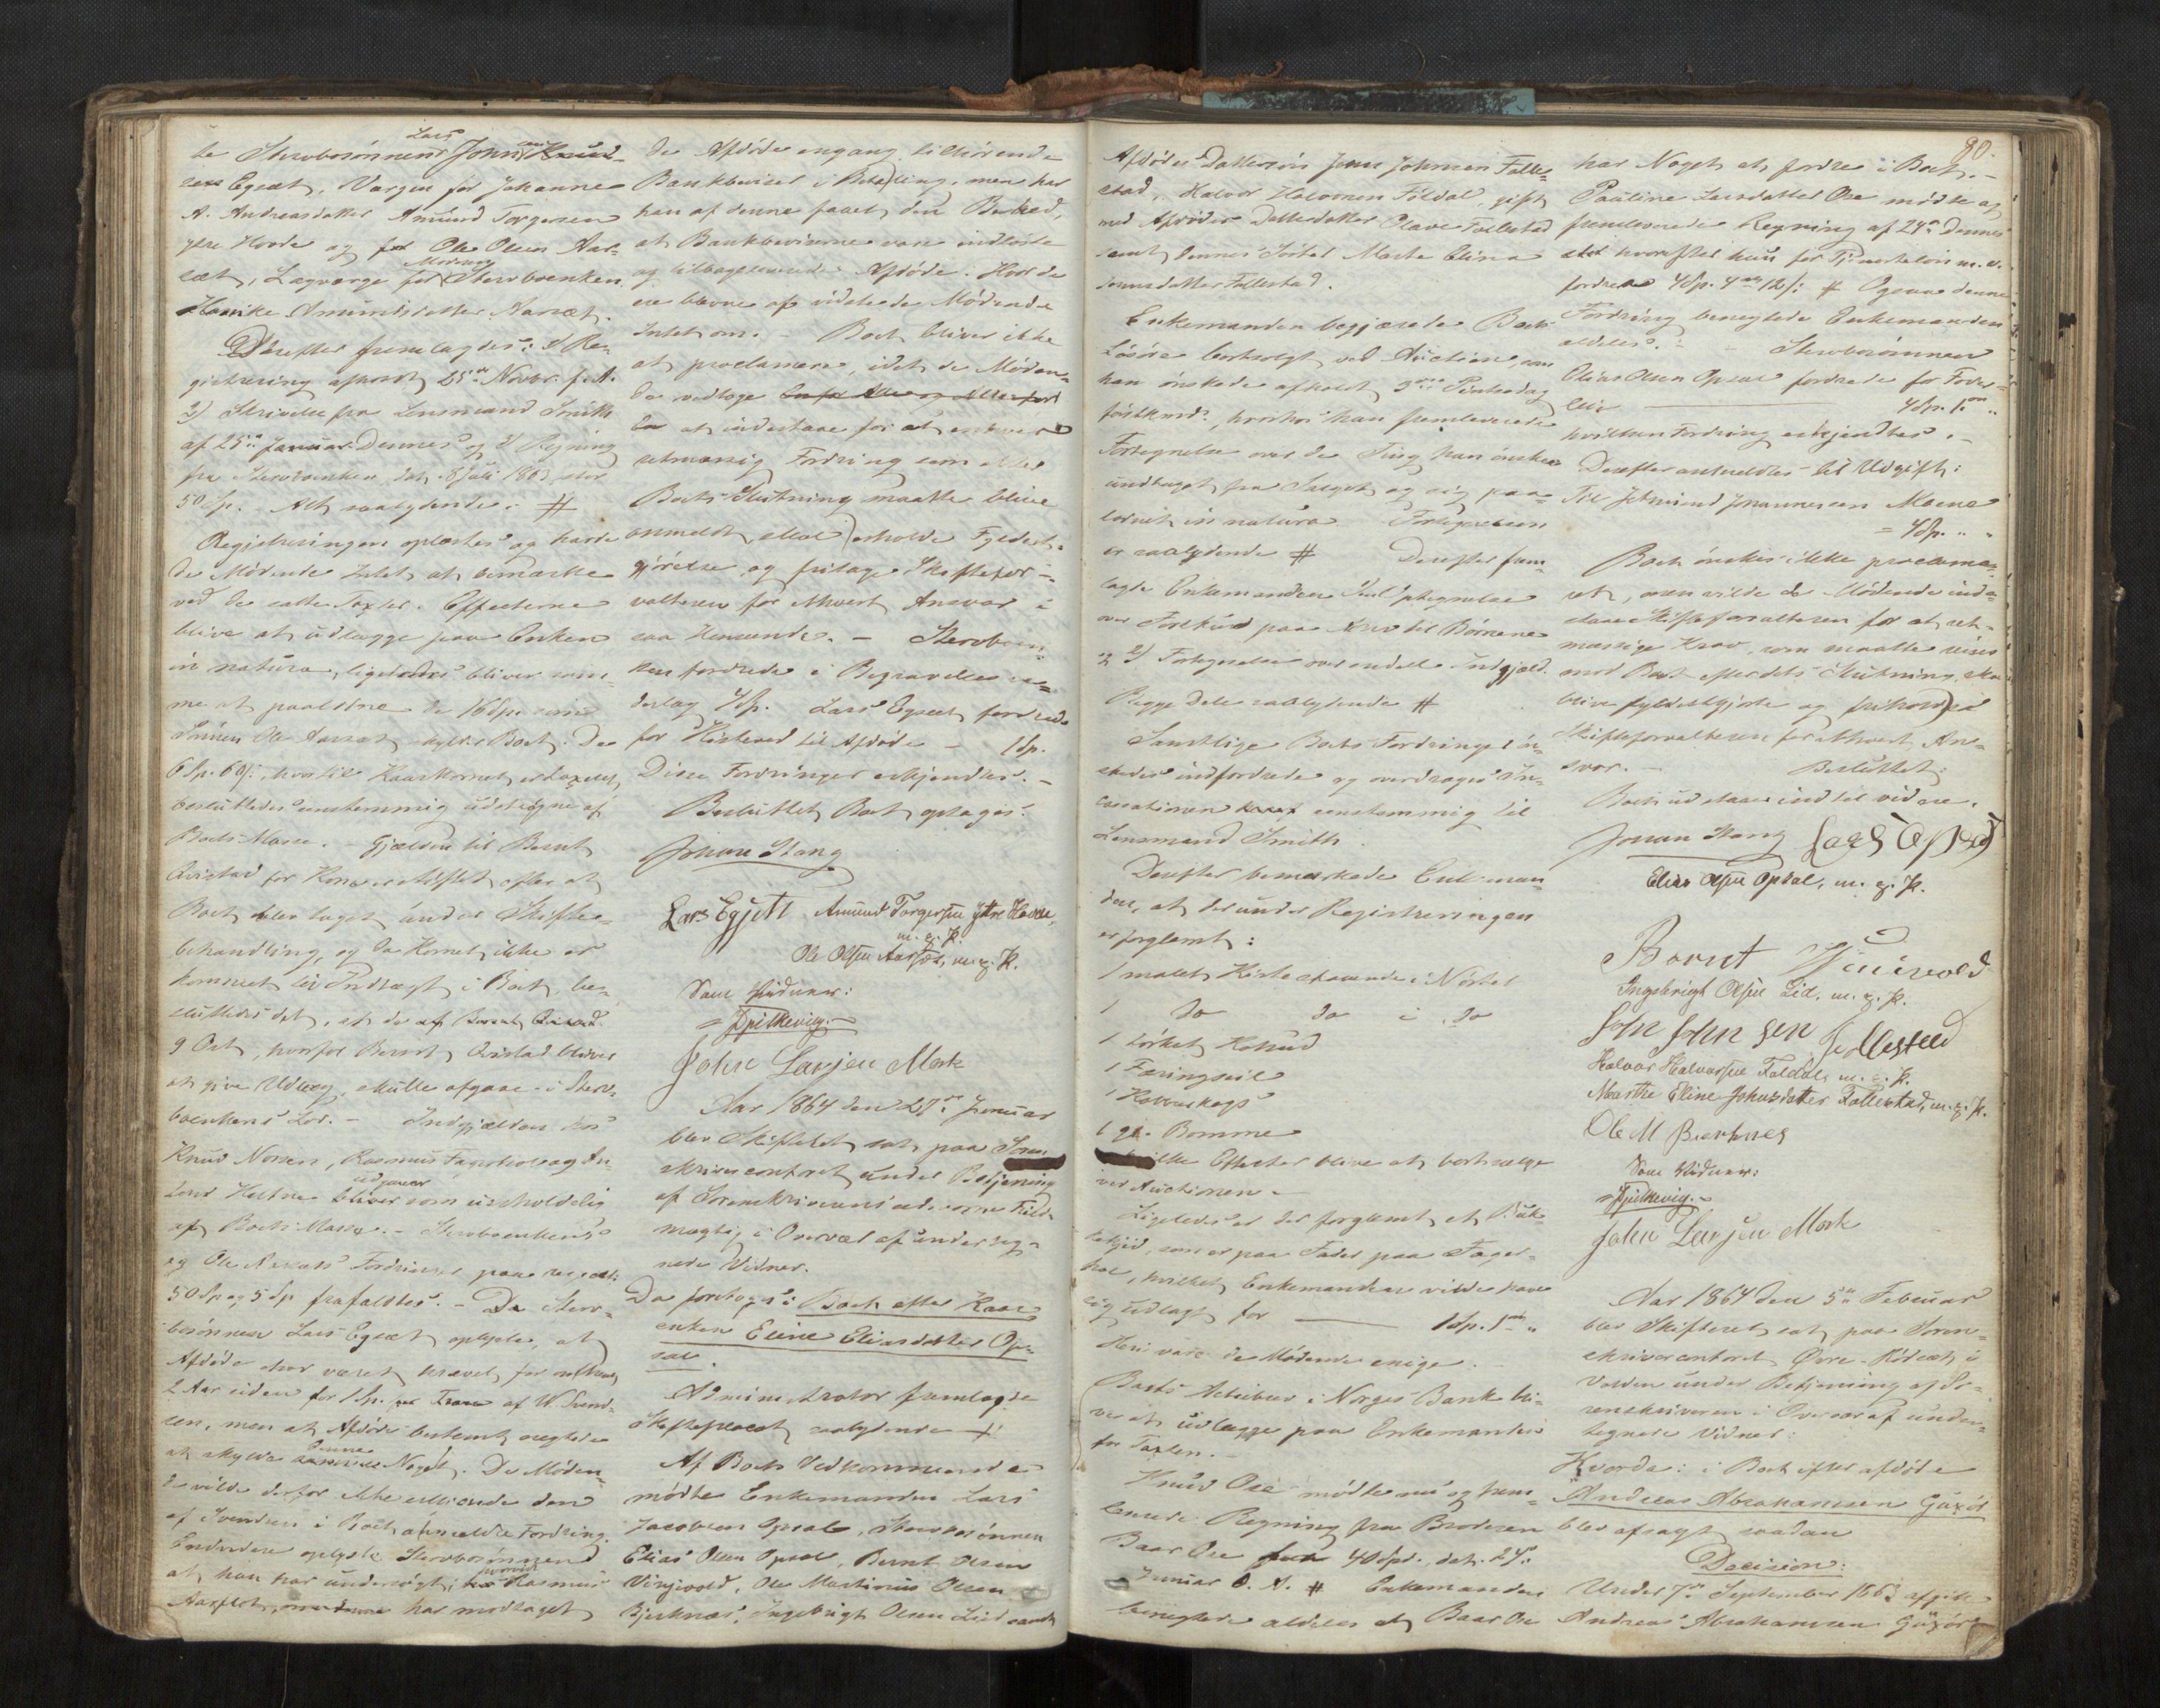 te Stervbosønnens Lars John
Egset, Værgen for Johanne
A. Andreasdatter Amund Torgersen
ytre Hovde og for Ole Olsen Aar-
sæt, Lagværge for Stervboenken
Amundsdatter Aarsæt.
Derefter fremlagdes: 1) Re-
gistrering afholdt 25de Novbr. f. A.
2) Skrivelse fra Lensmand Smith
af 25de Januar Dennes og 3) Regning
fra Stervboenken, dat. 8 Juli 1863, stor
50 Sp. Alt saalydende. #
Registreringen oplæstes og havde
de Mødende Intet at bemærke
ved de satte Taxter. Effecterne
blive at udlægge paa Enken
in natura, ligeledes bliver sam-
me at paalodne de 16 Sp. som
Sønnen Ole Aarsæt skylder Boet. De
6 Sp. 60 ß, hvortil Kaarkornet er taxeret,
besluttedes eenstemmig at udgaae af
Boets Masse. Gjælden til Bernt
Qvistad for Korn er stiftet efter at
Boet blev taget under Skifte-
behandling, og da Kornet ikke er
kommet til Indtægt i Boet, be-
sluttedes det, at de af Bernt Qvistad
9 Ort, hvorfor Bernt Qvistad bliver
at give Udlæg, skulle afgaae i Sterv-
boenkens Lod. – Indgjælden hos
Knud Nossen, Rasmus og An-
Heltne udgaaer som uerholdelig
af Boets Masse. – Stervboenkens
og Ole Aarsæts Fordringer paa respect.
50 Sp og 5 Sp frafaldtes. – Da Sterv-
bosønnen Lars Egset oplyste, at
Afdøde har været krævet for
2 Aar siden for 1 Sp. af W. Svend-
sen, men at Afdøde bestemt negtede
at skylde denne Noget. De Møden-
de vilde derfor ikke erkjende den
af Svendsen i Boet anmeldte Fordring.
Endvidere oplyste Stervbosønnen
at han har undersøgt, hvorvidt Rasmus
Aarflot har modtaget
de Afdøde engang tilhørende
Bankbeviser i Betaling, men har
han af denne faaet den Besked,
at Bankbeviserne vare indløste
og tilbageleverede Afdøde. Hvor de
ere blevne af vidste de Mødende
Intet om. – Boet bliver ikke
at proclamere, idet de Møden-
de vedtoge
at indestaae for at enhver
retmæssig Fordring som efter
Boets Slutning maatte blive
anmeldt, skal erholde Fyldest-
gjørelse og fritage Skiftefor-
valteren for ethvert Ansvar i
saa Henseende. – Stervboen-
ken fordrede i Begravelses
4 Sp. Lars Egset fordrede
for Kisteved til Afdøde – 1 Sp.
Disse Fordringer erkjendtes. –
Besluttet Boet optages.
Johan Stang
Lars Egsett Amund Torgersen Ytre Hovde,
m. p. P.
Ole Olsen Aarset, m. p. P.
Som Vidner:
Spilkevig.
John Larsen Mork
Aar 1864 den 27de Januar
blev Skifteret sat paa Soren-
skrivercontoret under Betjening
af Sorenskriverens edsvorne Fuld-
mægtig i Overvær af underteg-
nede Vidner.
Da foretoges: Boet efter Kaar-
enken Eline Eliasdatter Op-
sal.
Administrator fremlagde
Skifteplacat saalydende #
Af Boets Vedkommende
mødte Enkemanden Lars
Jacobsen Opsal, Stervbosønnen
Elias Olsen Opsal, Bernt Olsen
Vinjevold, Ole Martinus Olsen
Bjerknæs, Ingebrigt Olsen Lid samt
80.
Afdødes Dattersøn John Johnsen Folle-
stad, Halvor Halvorsen Foldal, gift
med Afdødes Datterdatter Olave Follestad
samt dennes Søster Marte Eline
Johnsdatter Follestad.
Enkemanden begjærede Boets
Løsøre bortsolgt ved Auction, som
han ønskede afholdt 3die Pintsedag
førstkomd., hvorhos han fremleverede
Fortegnelse over de Ting han ønsker
undtaget fra Salget og sig paa-
lodnet in natura. Fortegnelsen
er saalydende # Derefter frem-
lagde Enkemanden 1) Optegnelse
over Forskud paa Arv til Børnene
og 2) Fortegnelse over endeel Indgjæld.
Begge Dele saalydende #
Samtlige Boets Fordringer øn-
skedes indfordrede og overdroges In-
cassationen eenstemmig til
Lensmand Smith.
Derefter bemærkede Enkeman-
den, at der under Registreringen
er forglemt:
1 malet Kiste staaende i Nørbel
1 do do i do
1 tørket Kohud
1 Færingseil
1
1 gl. Bomme
Effecter blive at bortsælge
ved Auctionen. –
Ligeledes er der forglemt et Buk-
kekjid, som er paa Foder paa Fager-
hol, hvilket Enkemanden vilde have
sig udlagt for — 1 Sp. 1 ort „
Heri vare de Mødende enige.
Boets Actiebrev i Norges Bank bli-
ver at udlægge paa Enkemanden
for Taxten. –
Knud Ose mødte nu og frem-
leverede Regning fra Broderen
Baar Ose 40 Spd., dat. 24de
Januar d. A. # Enkemanden
benegtede aldeles at Baar Ose
har Noget at fordre i Boet. –
Pauline Larsdatter Ose mødte og
fremleverede Regning af 24de Dennes
hvorefter hun for Tjenesteløn m. v.
fordrer 4 Sp. 4 ort 12 ß: # Ogsaa denne
Fordring benegtede Enkemanden
aldeles. – Stervbosønnen
Elias Olsen Opsal fordrede for
— 4 Sp. 1 ort „
hvilken Fordring erkjendtes. –
Derefter anmeldtes til Udgift:
Til Johannessen
= 4 Sp. „ „
Boet ønskes ikke proclame-
ret, men vilde de Mødende inde-
staae Skifteforvalteren for at ret-
mæssige Krav, som maatte reises
mod Boet efter dets Slutning, skal
blive fyldestgjorte og friholde
Skifteforvalteren for ethvert An-
svar. – Besluttet:
Boet udstaaer indtil videre.
Johan Stang Lars Opsal
Elias Olsen Opsal, m. p. P.
Bernt Vinievold
Ingebrigt Olsen Lid, m. p. P.
John Johnsen Follestad
Halvor Halvorsen Foldal, m. p. P.
Marthe Eline Johnsdatter Follestad, m. p. P.
Ole M Bjerknes
Som Vidner:
Spilkevig.
John Larsen Mork
Aar 1864 den 5te Februar
blev Skifteret sat paa Soren-
skrivercontoret Øvre-Rødsæt i
Volden under Betjening af So-
renskriveren i Overvær af under-
tegnede Vidner:
Hvorda: i Boet efter afdøde
Andreas Abrahamsen
blev afsagt saadan
Decision:
Under 7de September 1863 afgik
Andreas Abrahamsen